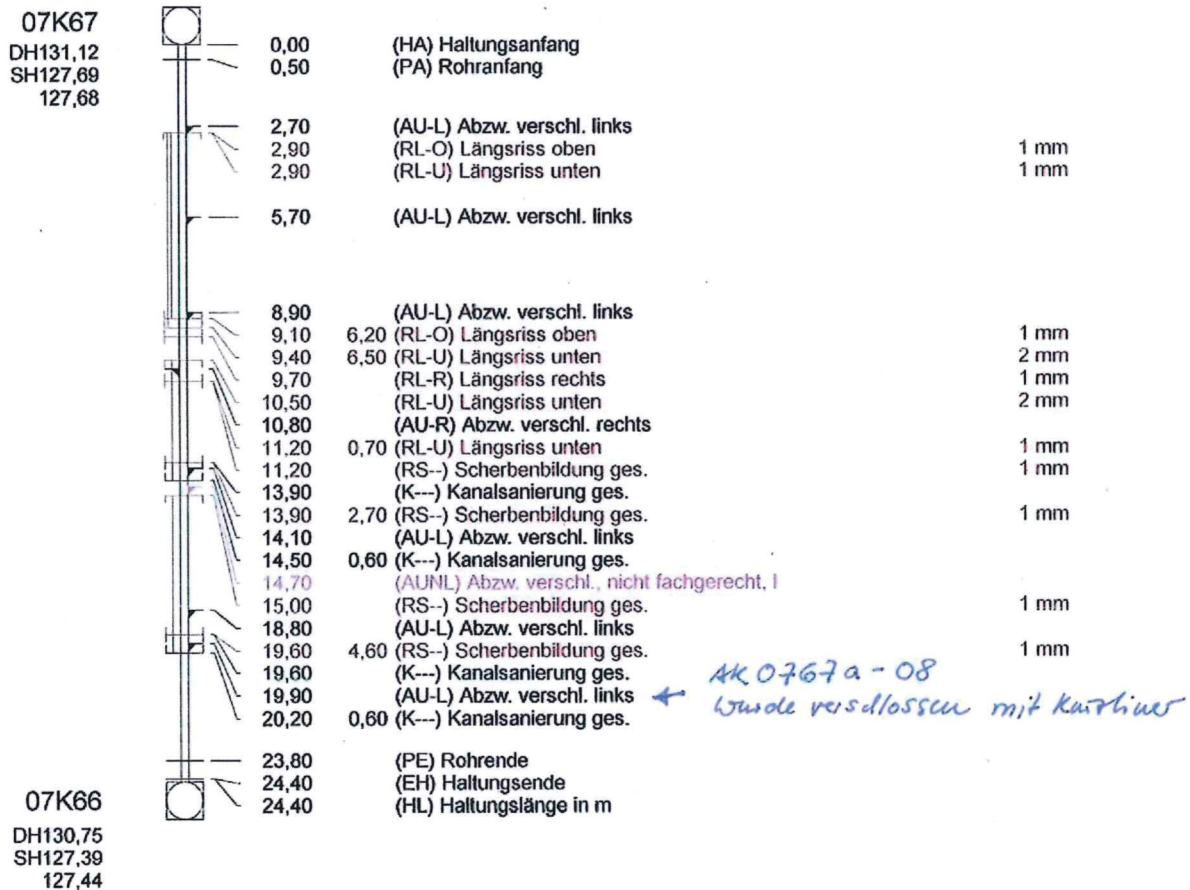 07K67
DH131,12
SH127,69
127,68
0,00 (HA) Haltungsanfang
0,50 (PA) Rohranfang
2,70 (AU-L) Abzw. verschl. links
2,90 (RL-O) Längsriss oben 1 mm
2,90 (RL-U) Längsriss unten 1 mm
5,70 (AU-L) Abzw. verschl. links
8,90 (AU-L) Abzw. verschl. links
9,10 6,20 (RL-O) Längsriss oben 1 mm
9,40 6,50 (RL-U) Längsriss unten 2 mm
9,70 (RL-R) Längsriss rechts 1 mm
10,50 (RL-U) Längsriss unten 2 mm
10,80 (AU-R) Abzw. verschl. rechts
11,20 0,70 (RL-U) Längsriss unten 1 mm
11,20 (RS--) Scherbenbildung ges. 1 mm
13,90 (K---) Kanalsanierung ges.
13,90 2,70 (RS--) Scherbenbildung ges. 1 mm
14,10 (AU-L) Abzw. verschl. links
14,50 0,60 (K---) Kanalsanierung ges.
14,70 (AUNL) Abzw. verschl., nicht fachgerecht, l
15,00 (RS--) Scherbenbildung ges. 1 mm
18,80 (AU-L) Abzw. verschl. links
19,60 4,60 (RS--) Scherbenbildung ges. 1 mm
19,60 (K---) Kanalsanierung ges.
19,90 (AU-L) Abzw. verschl. links ← AK 0767a - 08
wurde verschlossen mit Kurzliner
20,20 0,60 (K---) Kanalsanierung ges.
23,80 (PE) Rohrende
24,40 (EH) Haltungsende
24,40 (HL) Haltungslänge in m
07K66
DH130,75
SH127,39
127,44